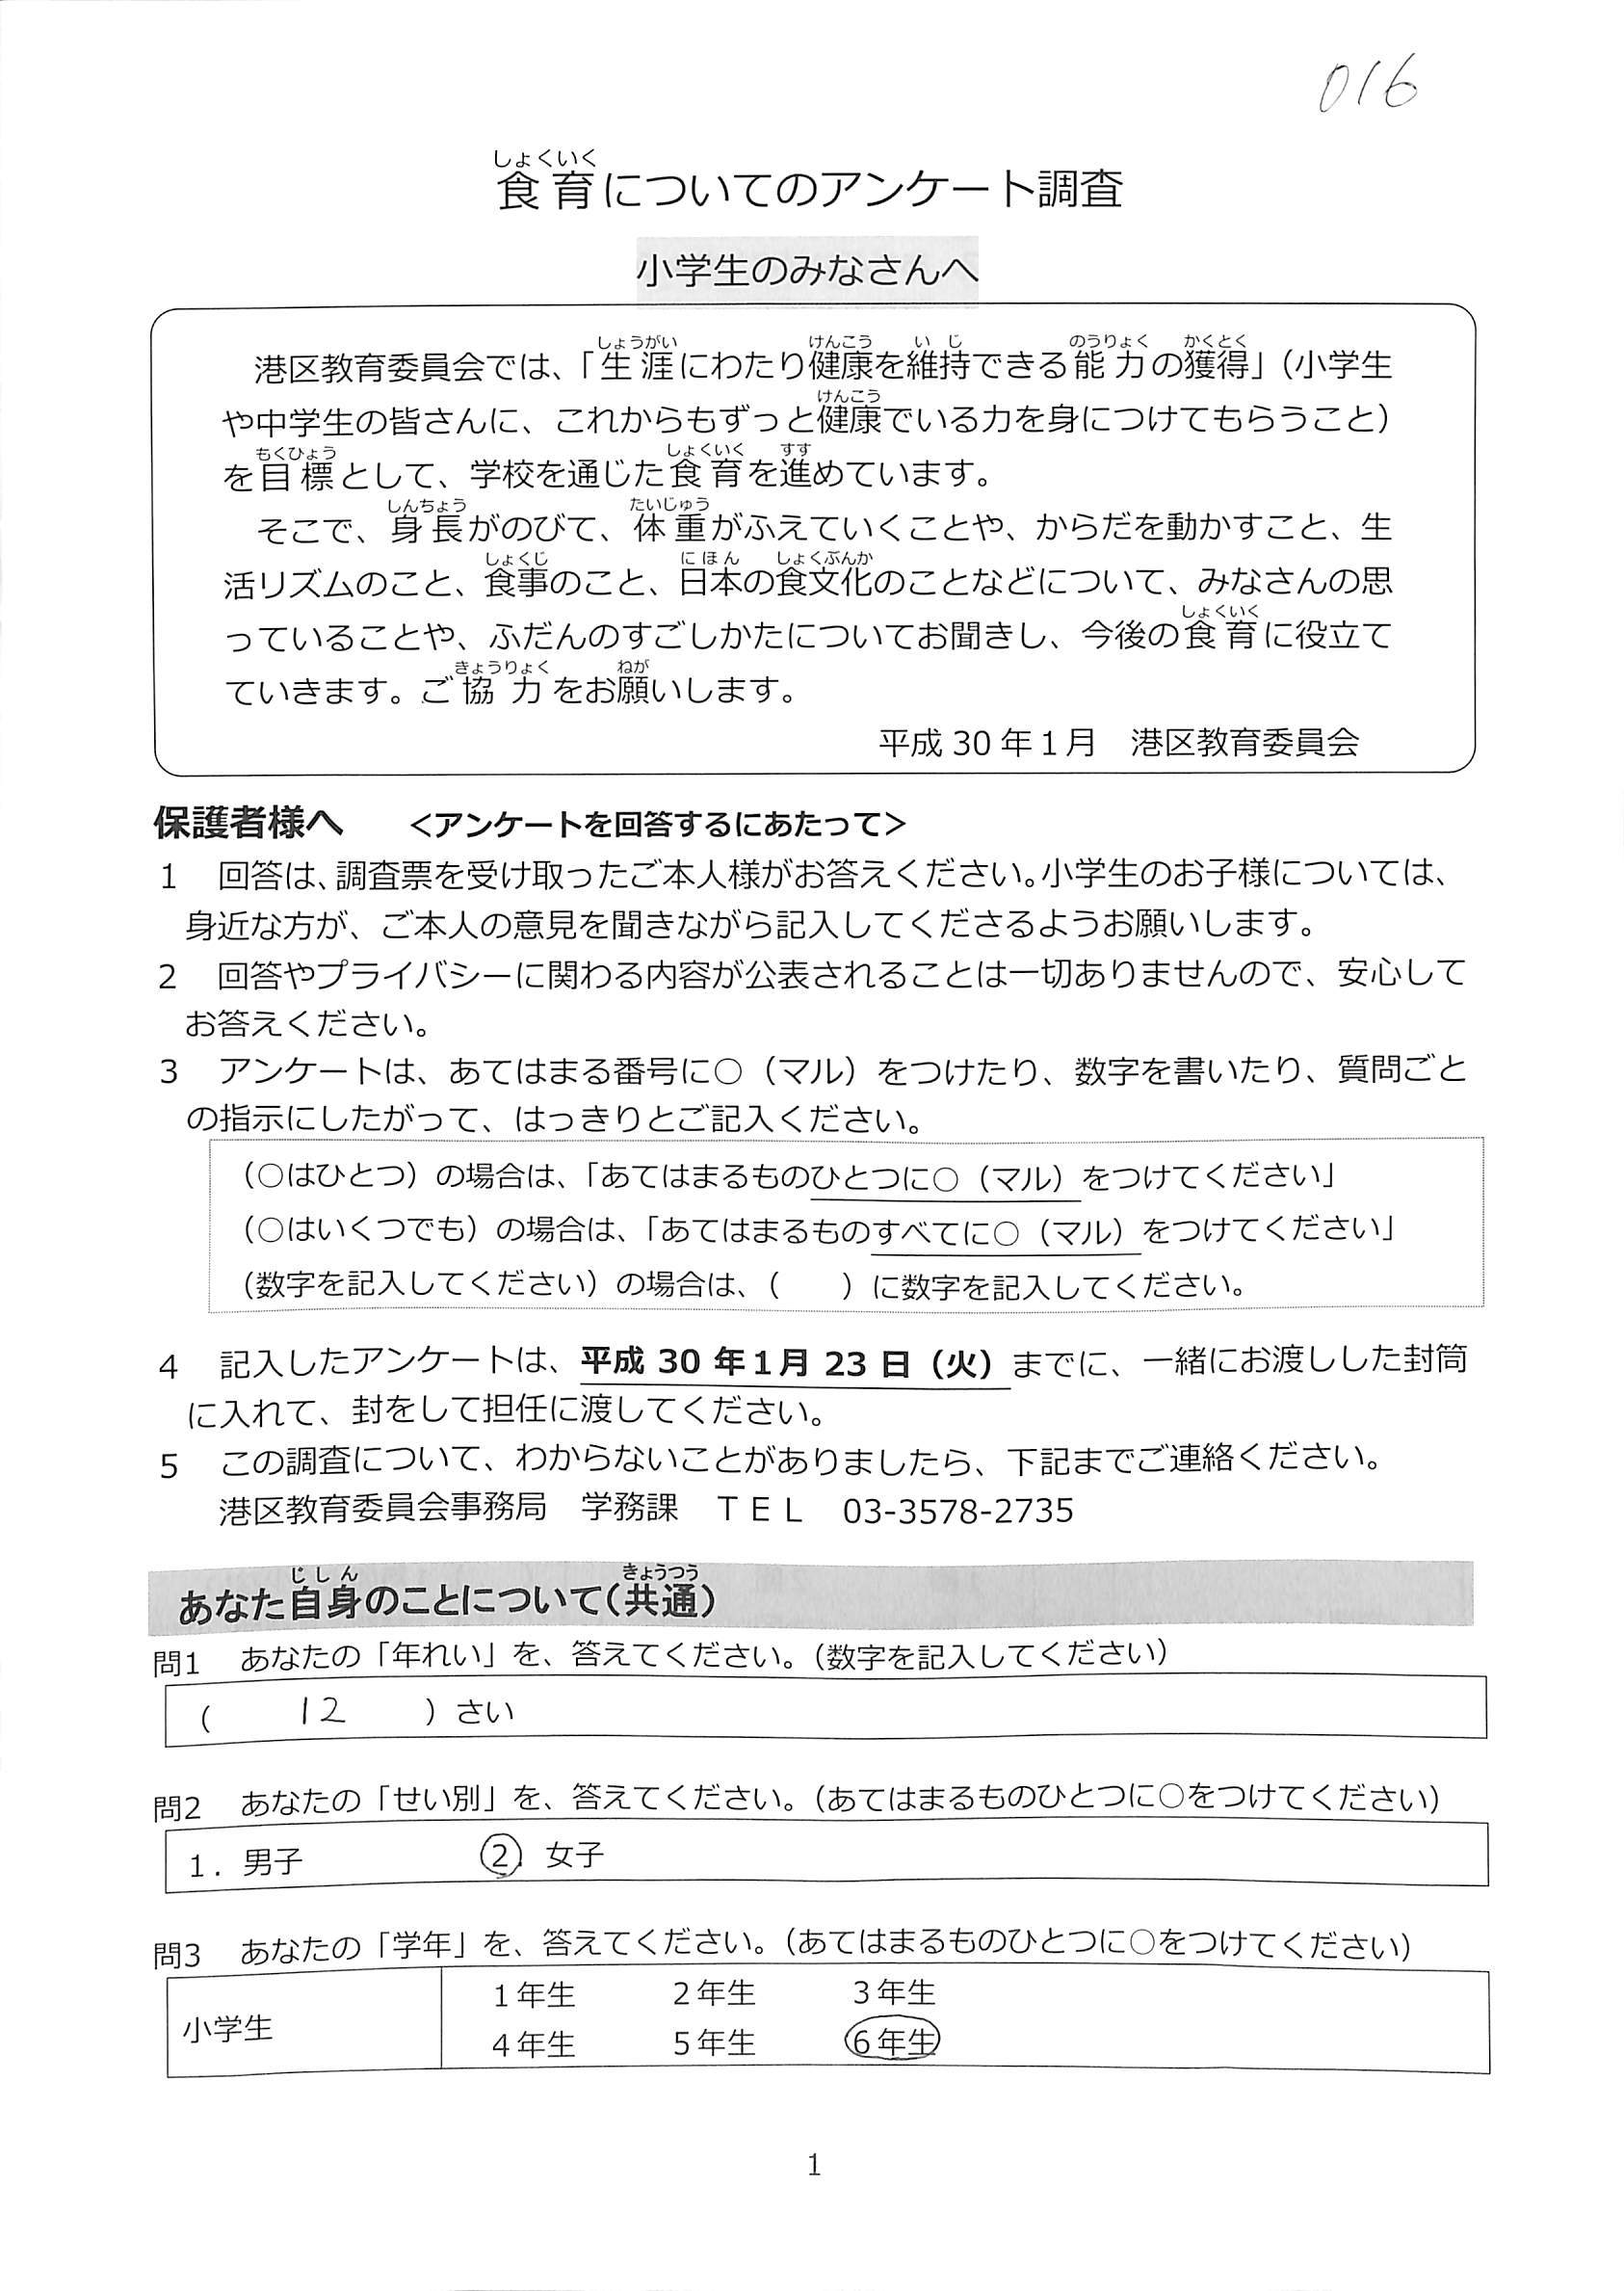 016
食育についてのアンケート調査
小学生のみなさんへ
港区教育委員会では、「生涯にわたり健康を維持できる能力の獲得」（小学生
や中学生の皆さんに、これからもずっと健康でいる力を身につけてもらうこと）
を目標として、学校を通じた食育を進めています。
そこで、身長がのびて、体重がふえていくことや、からだを動かすこと、生
活リズムのこと、食事のこと、日本の食文化のことなどについて、みなさんの思
っていることや、ふだんのすごしかたについてお聞きし、今後の食育に役立て
ていきます。ご協力をお願いします。
平成 30 年１月　港区教育委員会
保護者様へ　＜アンケートを回答するにあたって＞
１　回答は、調査票を受け取ったご本人様がお答えください。小学生のお子様については、
身近な方が、ご本人の意見を聞きながら記入してくださるようお願いします。
２　回答やプライバシーに関わる内容が公表されることは一切ありませんので、安心して
お答えください。
３　アンケートは、あてはまる番号に○（マル）をつけたり、数字を書いたり、質問ごと
の指示にしたがって、はっきりとご記入ください。
（○はひとつ）の場合は、「あてはまるものひとつに○（マル）をつけてください」
（○はいくつでも）の場合は、「あてはまるものすべてに○（マル）をつけてください」
（数字を記入してください）の場合は、（　　）に数字を記入してください。
４　記入したアンケートは、平成 30 年１月 23 日（火）までに、一緒にお渡しした封筒
に入れて、封をして担任に渡してください。
５　この調査について、わからないことがありましたら、下記までご連絡ください。
港区教育委員会事務局　学務課　ＴＥＬ　03-3578-2735
あなた自身のことについて（共通）
問1　あなたの「年れい」を、答えてください。（数字を記入してください）
（　12　）さい
問2　あなたの「せい別」を、答えてください。（あてはまるものひとつに○をつけてください）
１．男子　２．女子
問3　あなたの「学年」を、答えてください。（あてはまるものひとつに○をつけてください）
小学生
１年生　２年生　３年生
４年生　５年生　６年生
1